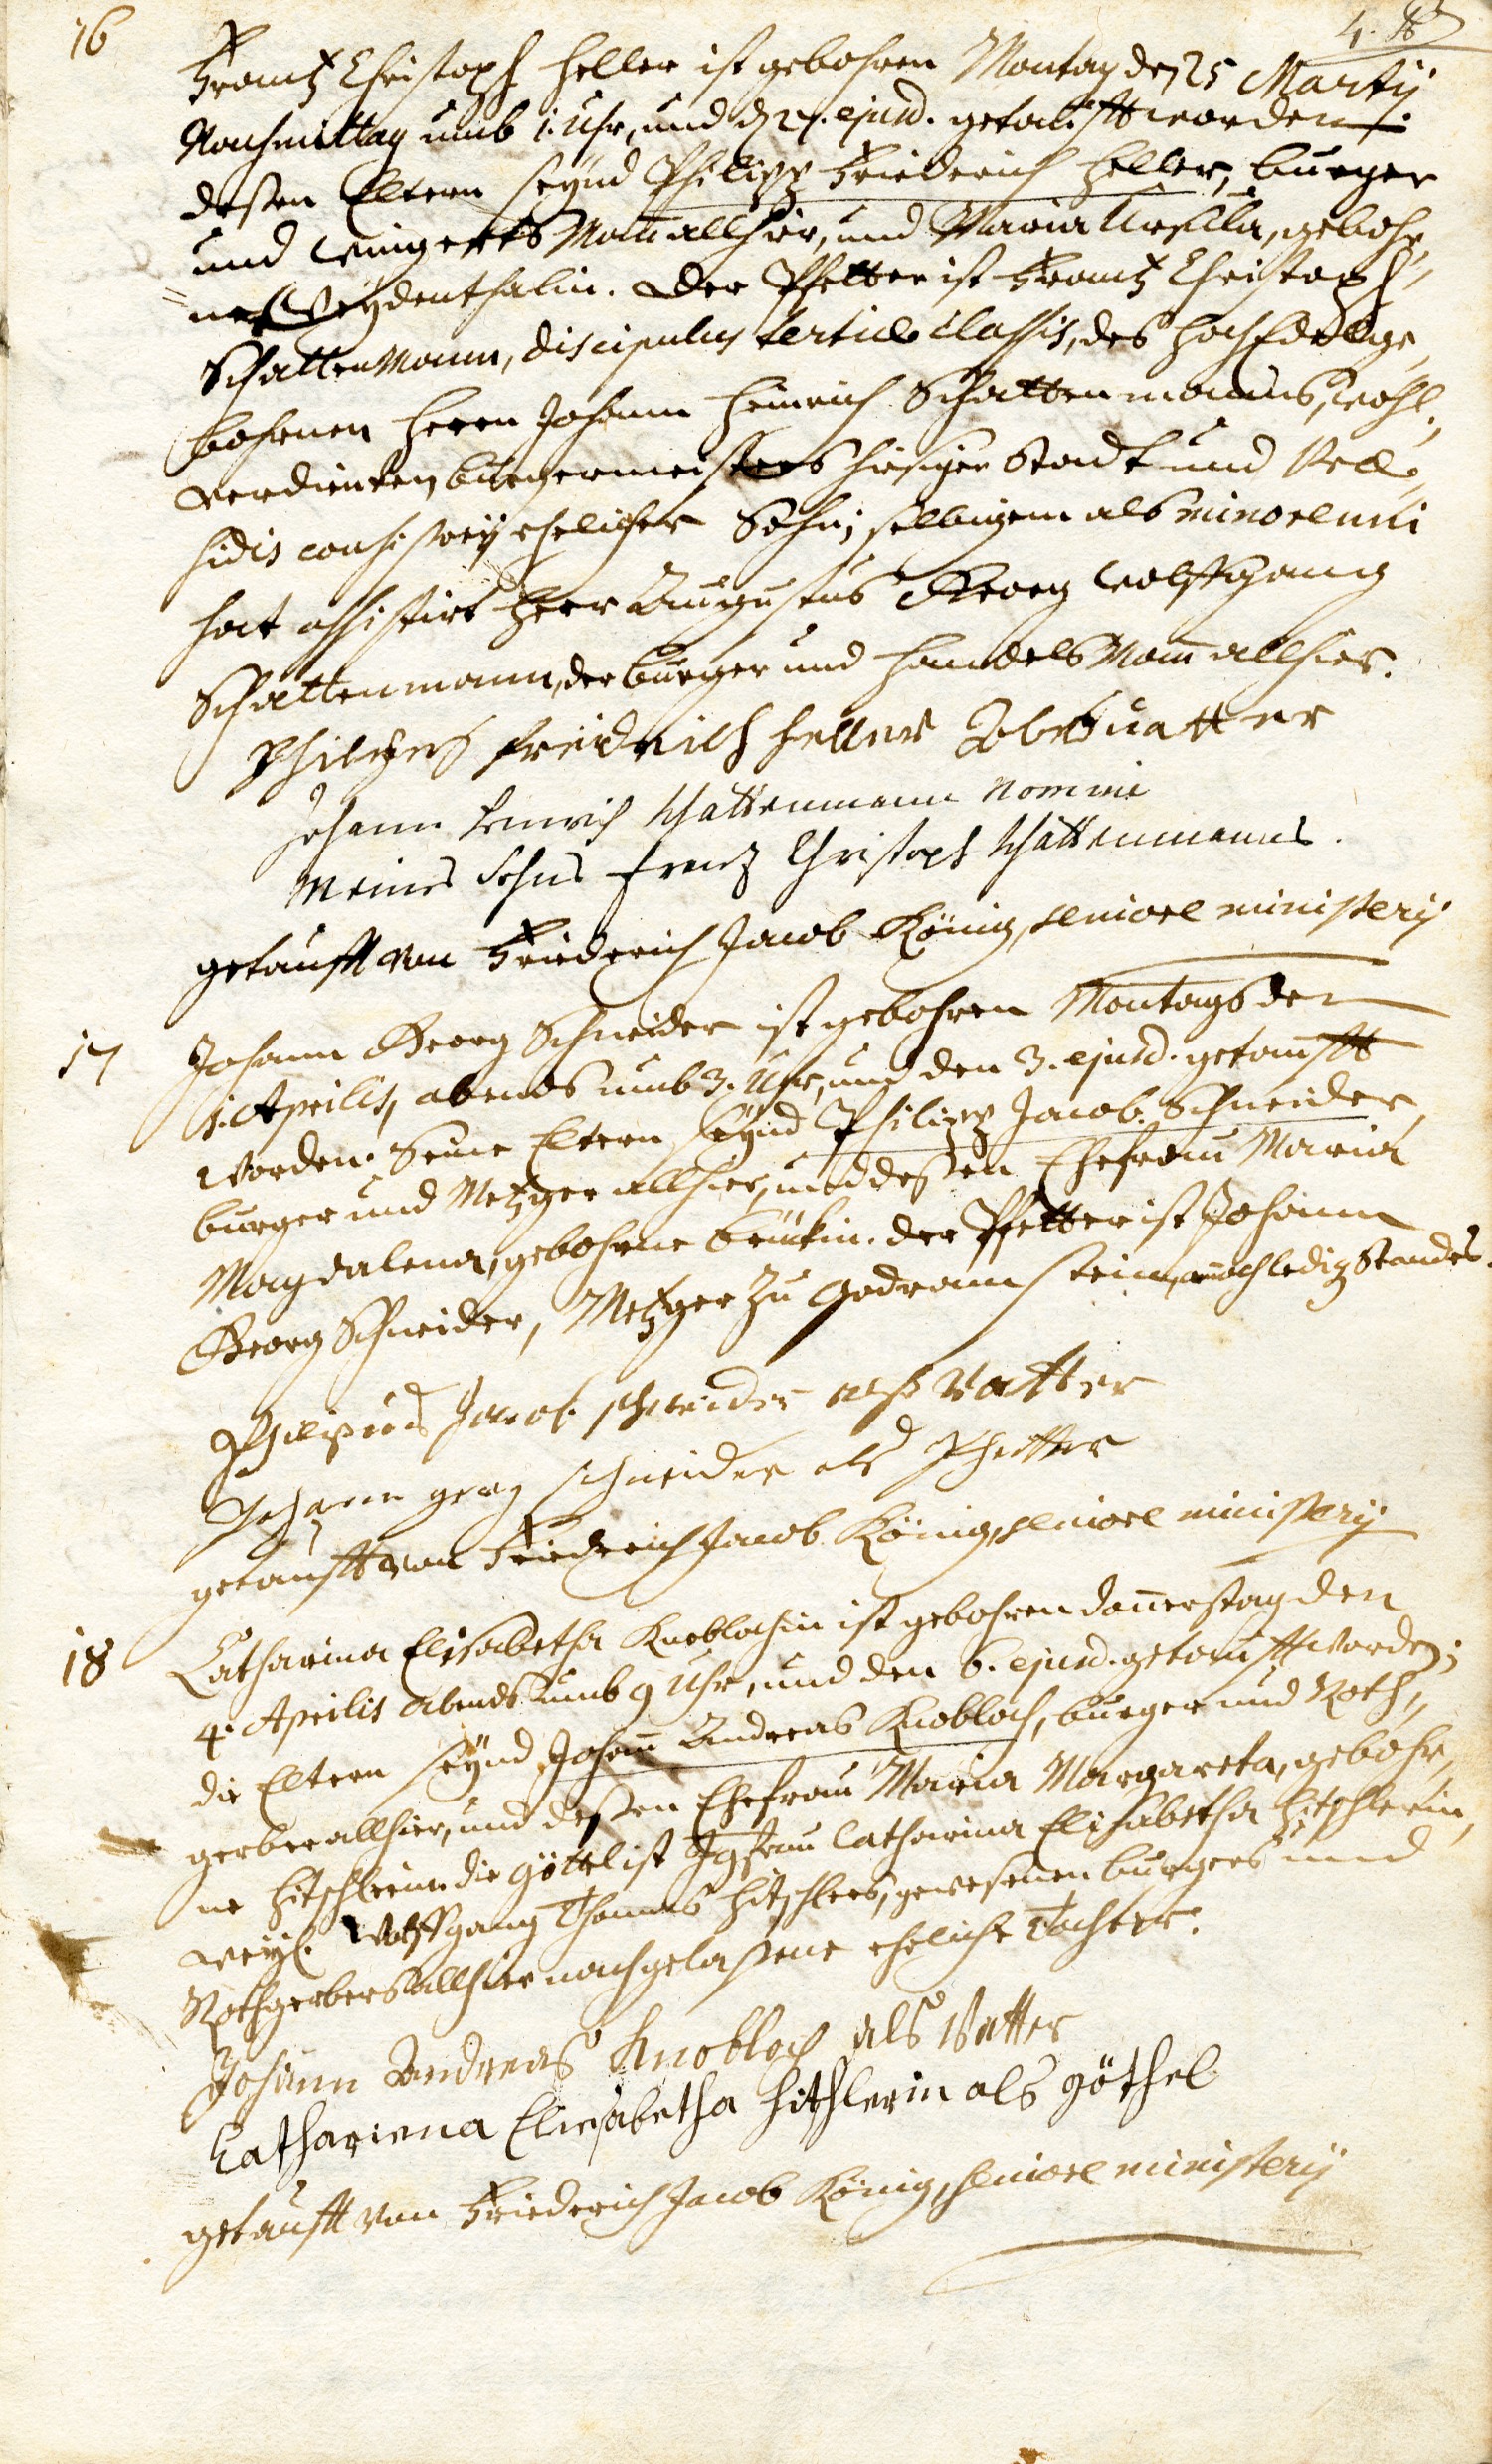 16
Frantz Christoph Heller ist gebohren Montag den 25 Martij
Nachmittag umb 1. Uhr, und d. 27. ejusd. getaufft worden.
deßen Eltern seynd Philipp Friederich Heller, burger
und Wingertsman allhier, und Maria Ursula, gebohr-
ne Weydenthalin. Der Pfetter ist Frantz Christoph
Schattenmann, discipulus tertiae classis, des HochEdelge-
bohrnen Herrn Johann Heinrich Schattenmanns, wohl-
verdienten burgermeisters hiesiger Stadt und
consistorij ehelicher Sohn; selbigem als minorenni
hat assistirt Herr Augustus Georg Wolffgang
Schattenmann, der burger und Handelsmann allhier.
Philipes Freidrich Heller Als Vatter
Johann Henrich Schattenmann Nomine
Meines Sohns Frantz Christoph Schattenmanns.
getaufft von Friederich Jacob König, seniore ministerij
17
Johann Georg Schneider ist gebohren Montags den
1. Aprilis, abends umb 3. Uhr, und den 3. ejusd. getaufft
worden. Seine Eltern seynd Philipp Jacob Schneider,
burger und Metzger allhier, und deßen Ehefrau Maria
Magdalena, gebohrne. der Pfetter ist Johann
Georg Schneider, Metzger zu Godramstein, noch ledig Standes.
Philippus Jacob schneider alß Vatter
Johann georg schneider als Pfetter
getaufft von Friederich Jacob König, seniore ministerij
18
Catharina Elisabetha Knoblochin ist gebohren Donnerstag den
4. Aprilis Abends umb 9 Uhr, und den 6. ejusd. getaufft worden;
die Eltern seynd Johann Andreas Knobloch, burger und Roth-
gerber allhier, und deßen Ehefrau Maria Margareta, gebohr-
ne Hitschlerin. die Göttel ist Jgfrau Catharina Elisabetha Hitschlerin,
weyl. Wolffgang Thomas Hitschlers, gewesenen burgers und
Rothgerbers allhier nachgelaßene eheliche Tochter.
Johann Andreas Knobloch als Vatter
Cathariena Eliesabetha hithlerin als göthel
getaufft von Friederich Jacob König, seniore ministerij